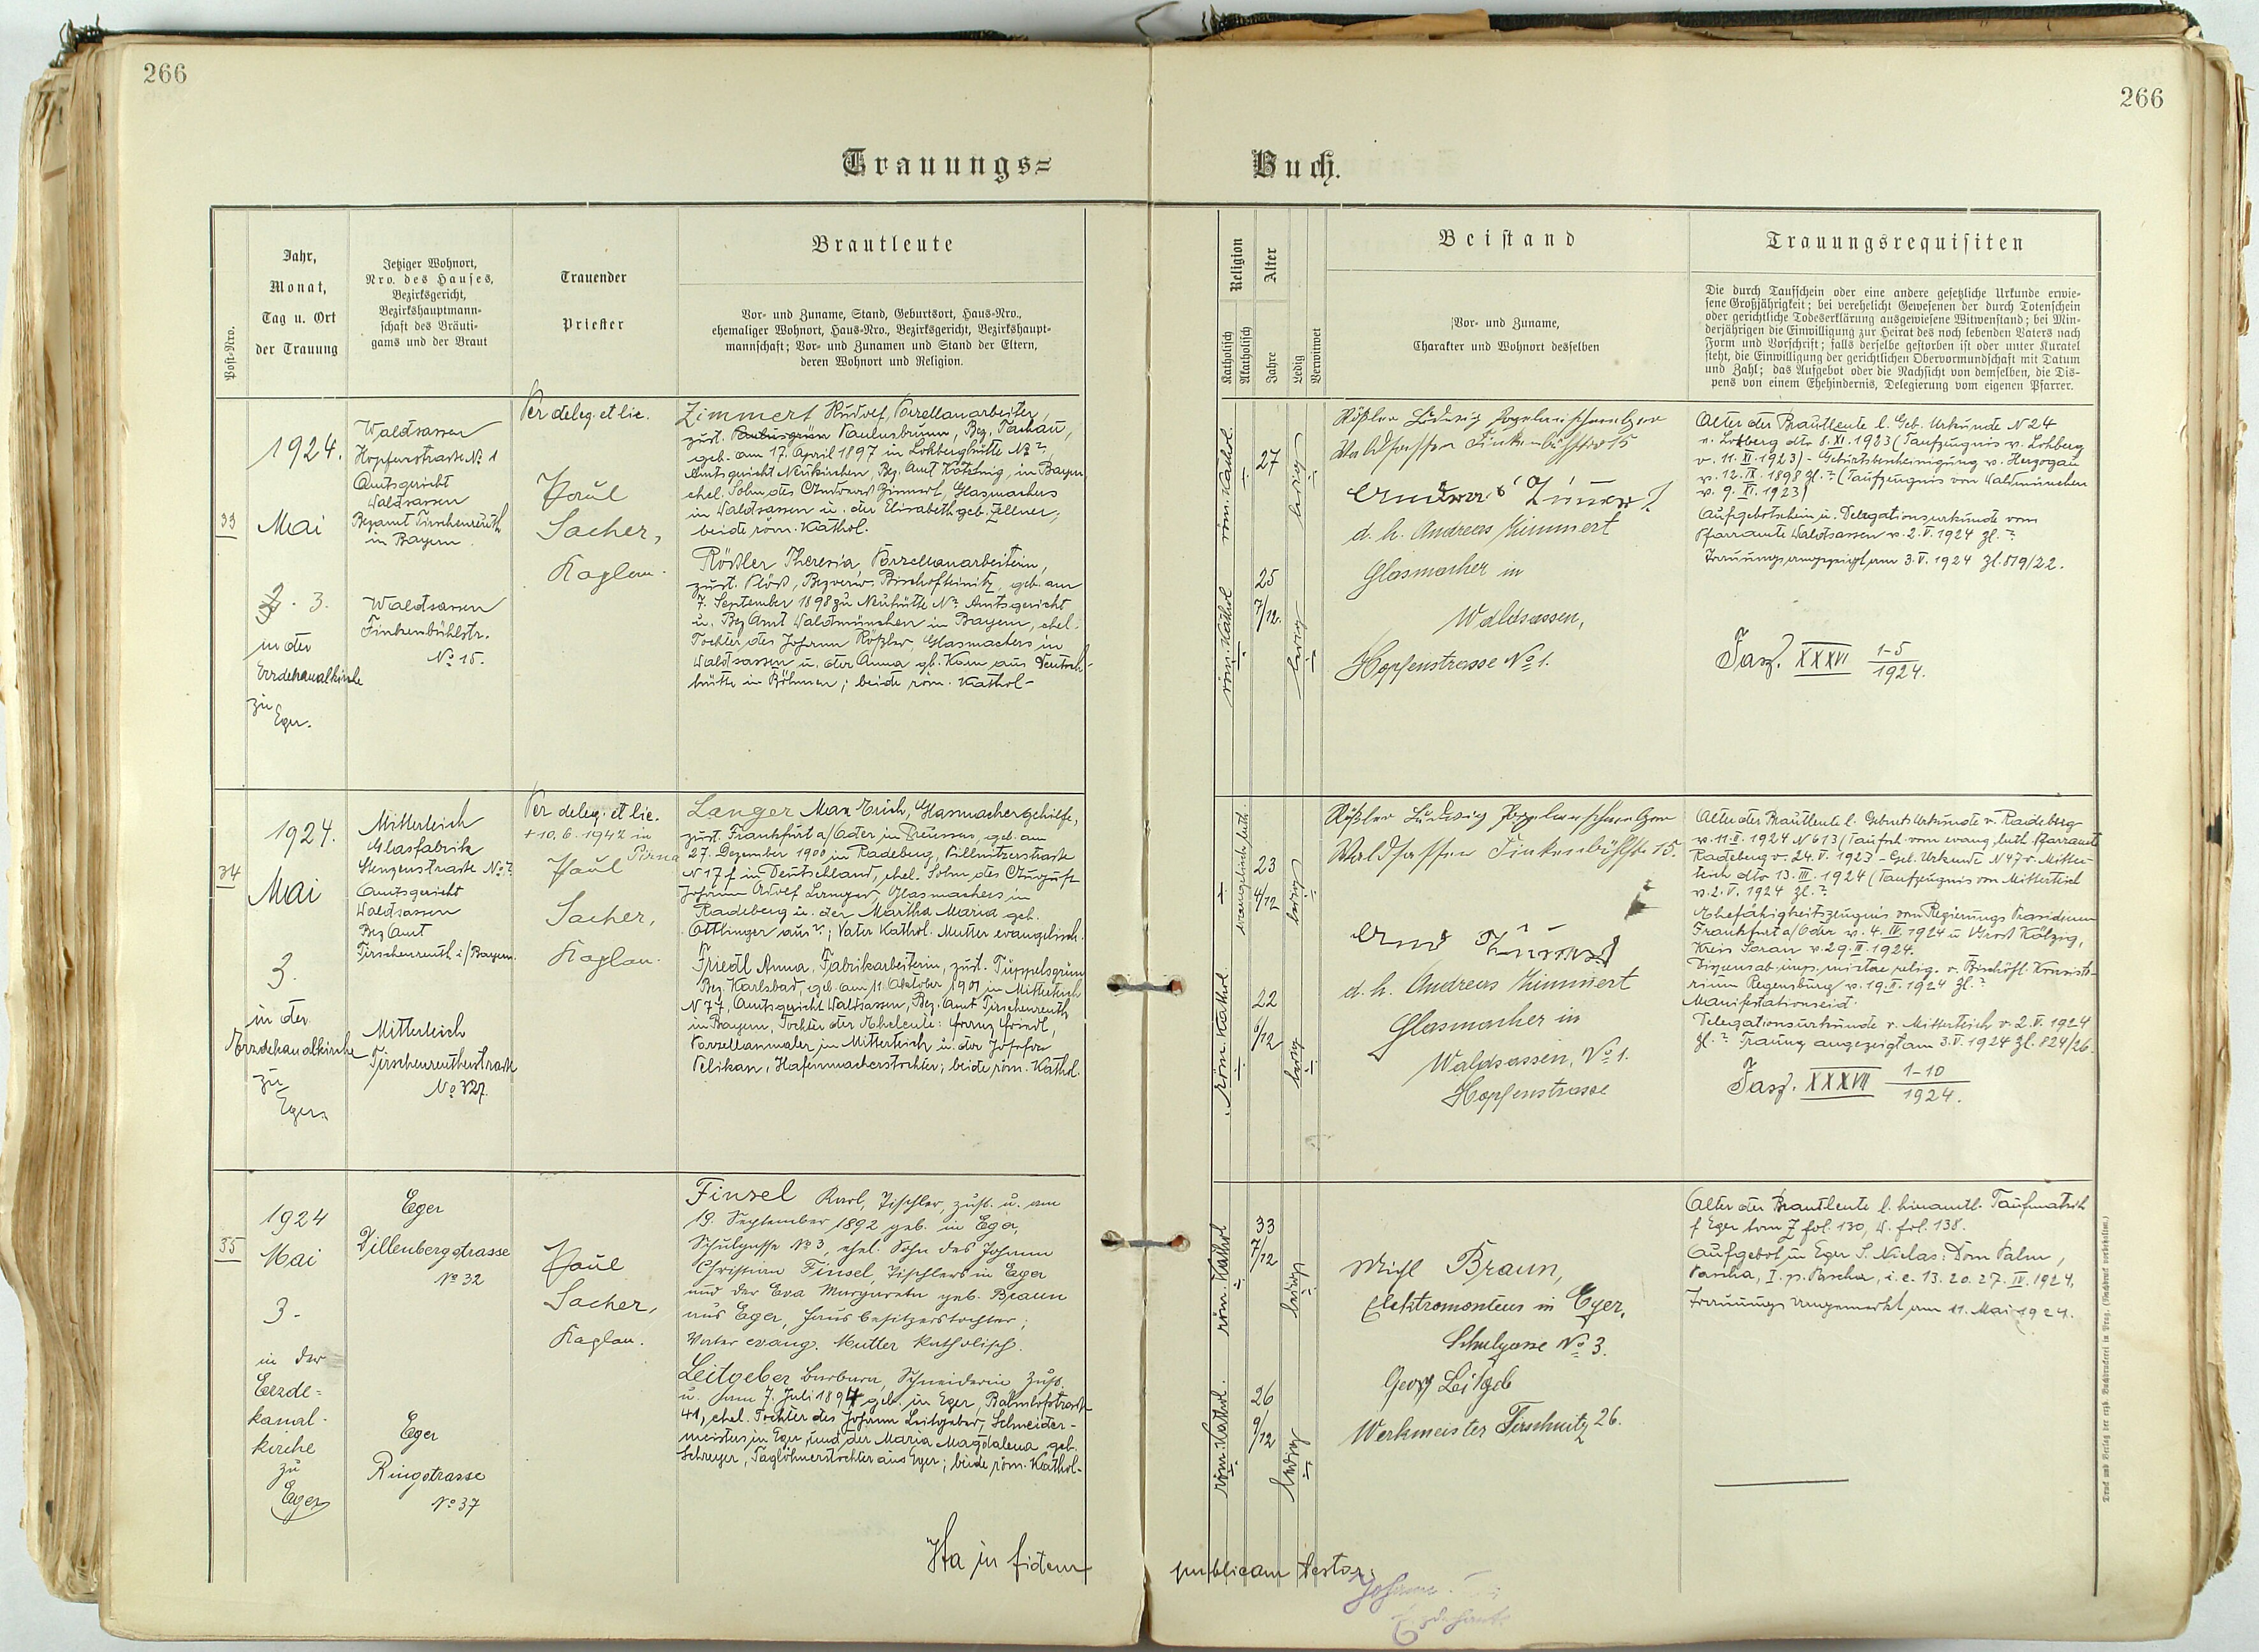 266
266
Trauungs=
Buch.
Post=Nro.
Jahr,
Monat,
Tag u. Ort
der Trauung
Jetziger Wohnort,
Nro. des Hauses,
Bezirksgericht,
Bezirkshauptmann=
schaft des Bräuti=
gams und der Braut
Trauender
Priester
Brautleute
Vor= und Zuname, Stand, Geburtsort, Haus=Nro.,
ehemaliger Wohnort, Haus=Nro., Bezirksgericht, Bezirkshaupt=
mannschaft; Vor= und Zunamen und Stand der Eltern,
deren Wohnort und Religion.
Religion
Katholisch
Akatholisch
Alter
Jahre
Ledig
Verwitwet
Beistand
Vor= und Zuname,
Charakter und Wohnort desselben
Trauungsrequisiten
Die durch Taufschein oder eine andere gesetzliche Urkunde erwie=
sene Großjährigkeit; bei verehelicht Gewesenen der durch Totenschein
oder gerichtliche Todeserklärung ausgewiesene Witwenstand; bei Min=
derjährigen die Einwilligung zur Heirat des noch lebenden Vaters nach
Form und Vorschrift; falls derselbe gestorben ist oder unter Kuratel
steht, die Einwilligung der gerichtlichen Obervormundschaft mit Datum
und Zahl; das Aufgebot oder die Nachsicht von demselben, die Dis=
pens von einem Ehehindernis, Delegierung vom eigenen Pfarrer.
33
1924.
Mai
3.
in der
Erzdekanalkirche
zu
Eger.
Waldsassen
Hopfenstrasse No 1
Amtsgericht
Waldsassen
Bezamt Tirschenreuth
in Bayern.
Waldsassen
Finkenbühlstr.
No 15.
Per deleg. et lic.
Paul
Sacher,
Kaplan.
Zimmert Rudolf, Porzellanarbeiter,
zust. Paulusbrunn, Bez. Tachau,
geb. am 17. April 1897 in Lohberghütte No ?,
Amtsgericht Neukirchen, Bez. Amt Kötzting, in Bayern
ehel. Sohn des Andreas Zimmert, Glasmachers
in Waldsassen u. der Elisabeth geb. Zellner;
beide röm. Kathol.
Rößler Theresia, Porzellanarbeiterin,
zust. Plöß, Bezverw. Bischofteinitz, geb. am
7. September 1898 zu Neuhütte No ? Amtsgericht
u. Bez Amt Waldmünchen in Bayern, ehel.
Tochter des Johann Rößler, Glasmachers in
Waldsassen u. der Anna gb. aus Deutsch-
hütte in Böhmen; beide röm. Kathol-
röm. Kathol.
27
ledig
röm. Kathol
25
7/12.
ledig
Rößler Ludwig Porzelanschmelzer
Waldsassen Finkenbühlstr 15
Andreas Zimmert
d. h. Andreas Zimmert
Glasmacher in
Waldsassen,
Hopfenstrasse No 1.
Alter der Brautleute l. Geb. Urkunde N 24
v. Lohberg dto 8. XI. 1923 (Taufzeugnis v. Lohberg
v. 11. XI. 1923) - Geburtsbescheinigung v. Herzogau
v. 12. IX. 1898 Zl. ? (Taufzeugnis von Waldmünchen
v. 9. XI. 1923)
Aufgebotschein u. Delegationsurkunde vom
Pfarramte Waldsassen v. 2. V. 1924 Zl. ?
Trauung angezeigt am 3. V. 1924 Zl. 819/22.
Fasz. XXXVI 1-5
1924.
34
1924.
Mai
3.
in der
Erzdekanalkirche
zu
Eger.
Mitterteich
Glasfabrik
No ?
Amtsgericht
Waldsassen
Bez Amt
Tirschenreuth i/Bayern.
Mitterteich
Tirschenreutherstrasse
No 327
Per deleg. et lic.
+ 10. 6. 1942 in
Pirna
Paul
Sacher,
Kaplan.
Langer Max Erich, Glasmachergehilfe,
zust. Frankfurt a/Oder in Preussen, geb. am
27. Dezember 1900 in Radeberg, Pillnitzerstrasse
N 17 f in Deutschland, ehel. Sohn des August
Johann Adolf Langer, Glasmachers in
Radeberg u. der Martha Maria geb.
Ottlinger aus ?; Vater Kathol. Mutter evangelisch.
Friedl Anna, Fabrikarbeiterin, zust. Tüppelsgrün
Bez. Karlsbad, geb. am 11. Oktober 1901 in Mitterteich
N 77, Amtsgericht Waldsassen, Bez. Amt Tirschenreuth
in Bayern, Tochter der Eheleute: Franz Friedl,
Porzellanmaler in Mitterteich u. der Josefa
Pelikan, Hafenmacherstochter; beide röm. Kathol.
evangelisch luth.
23
4/12
ledig
röm. Kathol.
22
6/12
ledig
Rößler Ludwig Porzelanschmelzer
Waldsassen Finkenbühlstr 15.
And Zimmert
d. h. Andreas Zimmert
Glasmacher in
Waldsassen, No 1.
Hopfenstrasse
Alter der Brautleute l. Geburts Urkunde v. Radeberg
v. 11. II. 1924 N 613 (Taufsch. vom evang. luth. Pfarramte
Radeberg v. 24. V. 1923 - Geb. Urkunde N 47 v. Mitter-
teich dto 13. III. 1924 (Taufzeugnis von Mitterteich
v. 2. V. 1924 Zl. ?
Ehefähigkeitszeugnis vom Regierungs Präsidenten
Frankfurt a/Oder v. 4. IV. 1924 u Gross Kölzig,
Kreis Sorau v. 29. II. 1924.
Dispens ab imp. mixtae relig. v. Bischöfl. Konsisto-
rium Regensburg v. 19. II. 1924 Zl. ?
Manifestationseid.
Delegationsurkunde v. Mitterteich v. 2. V. 1924
Zl. ? Trauung angezeigt am 3. V. 1924 Zl. 824/26.
Fasz. XXXVII 1-10
1924.
35
1924
Mai
3.
in der
Erzde=
kanal-
kirche
zu
Eger
Eger
Dillenbergstrasse
No 32
Eger
Ringstrasse
No 37
Paul
Sacher,
Kaplan.
Finsel Karl, Tischler, zust. u. am
19. September 1892 geb. in Eger,
Schulgasse No 3, ehel. Sohn des Johann
Christian Finsel, Tischlers in Eger
und der Eva Margareta geb. Braun
aus Eger, Hausbesitzerstochter;
Vater evang. Mutter katholisch.
Leitgeber Barbara, Schneiderin zust.
u. am 7. Juli 1897 geb. in Eger, Bahnhofstrasse
41, ehel. Tochter des Johann Leitgeber, Schneider-
meisters in Eger und der Maria Magdalena geb.
Schreyer, Taglöhnerstochter aus Eger; beide röm. Kathol-
röm. Kathol
33
7/12
ledig
röm. Kathol.
26
9/12
ledig
Michl Braun,
Elektromonteur in Eger,
Schulgasse No 3.
Georg Leitgeb
Werkmeister Tirschnitz 26.
Alter der Brautleute l. hieramtl. Taufmatrik
f Eger tom Z fol. 130, W. fol. 138.
Aufgebot in Eger S. Niclas: Dom Palm,
Pascha, I. p. Pascha, i. e. 13. 20. 27. IV. 1924.
Trauung angemerkt am 11. Mai 1924.
Ita in fidem
publicam testor:
Johann
Erzdechant
Druck und Verlag der erzb. Buchdruckerei in Prag. (Nachdruck vorbehalten.)